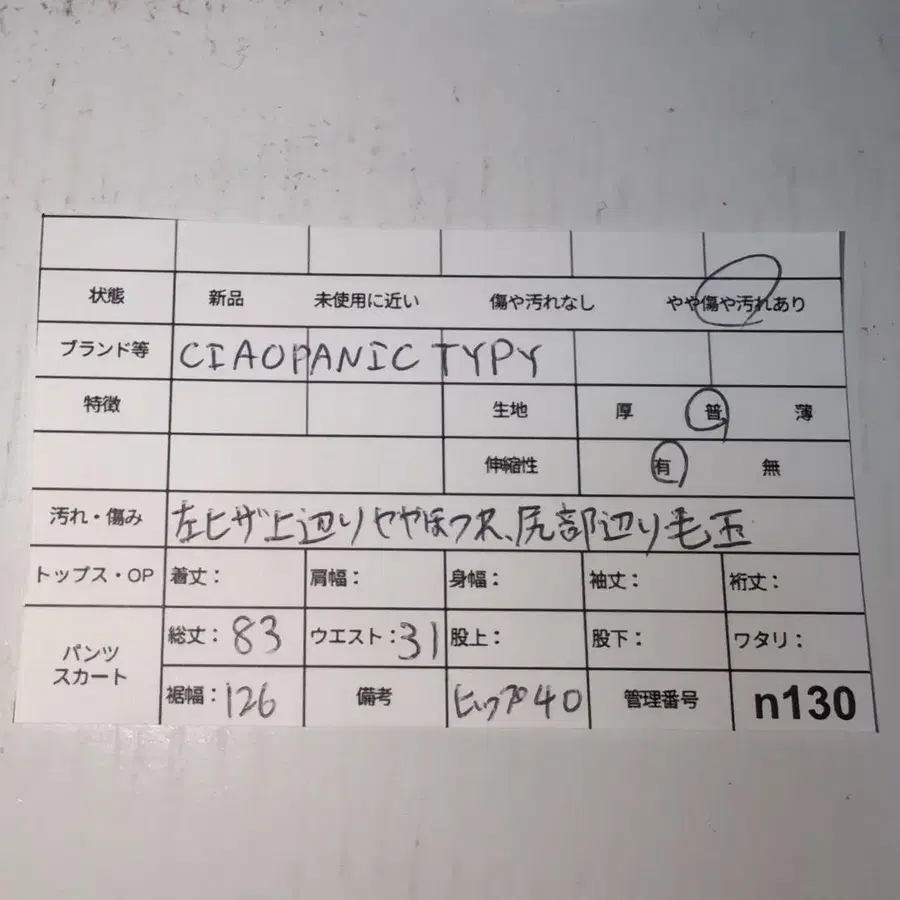 状態 新品 未使用に近い 傷や汚れなし やや傷や汚れあり
ブランド等 CIAOPANIC TYPY
特徴 生地 厚 普 薄
伸縮性 有 無
汚れ・傷み 左ヒザ上辺りややほつれ、尻部辺り毛玉
トップス・OP 着丈: 肩幅: 身幅: 袖丈: 裄丈:
パンツ スカート 総丈: 83 ウエスト: 31 股上: 股下: ワタリ:
裾幅: 126 備考 ヒップ40 管理番号 n130